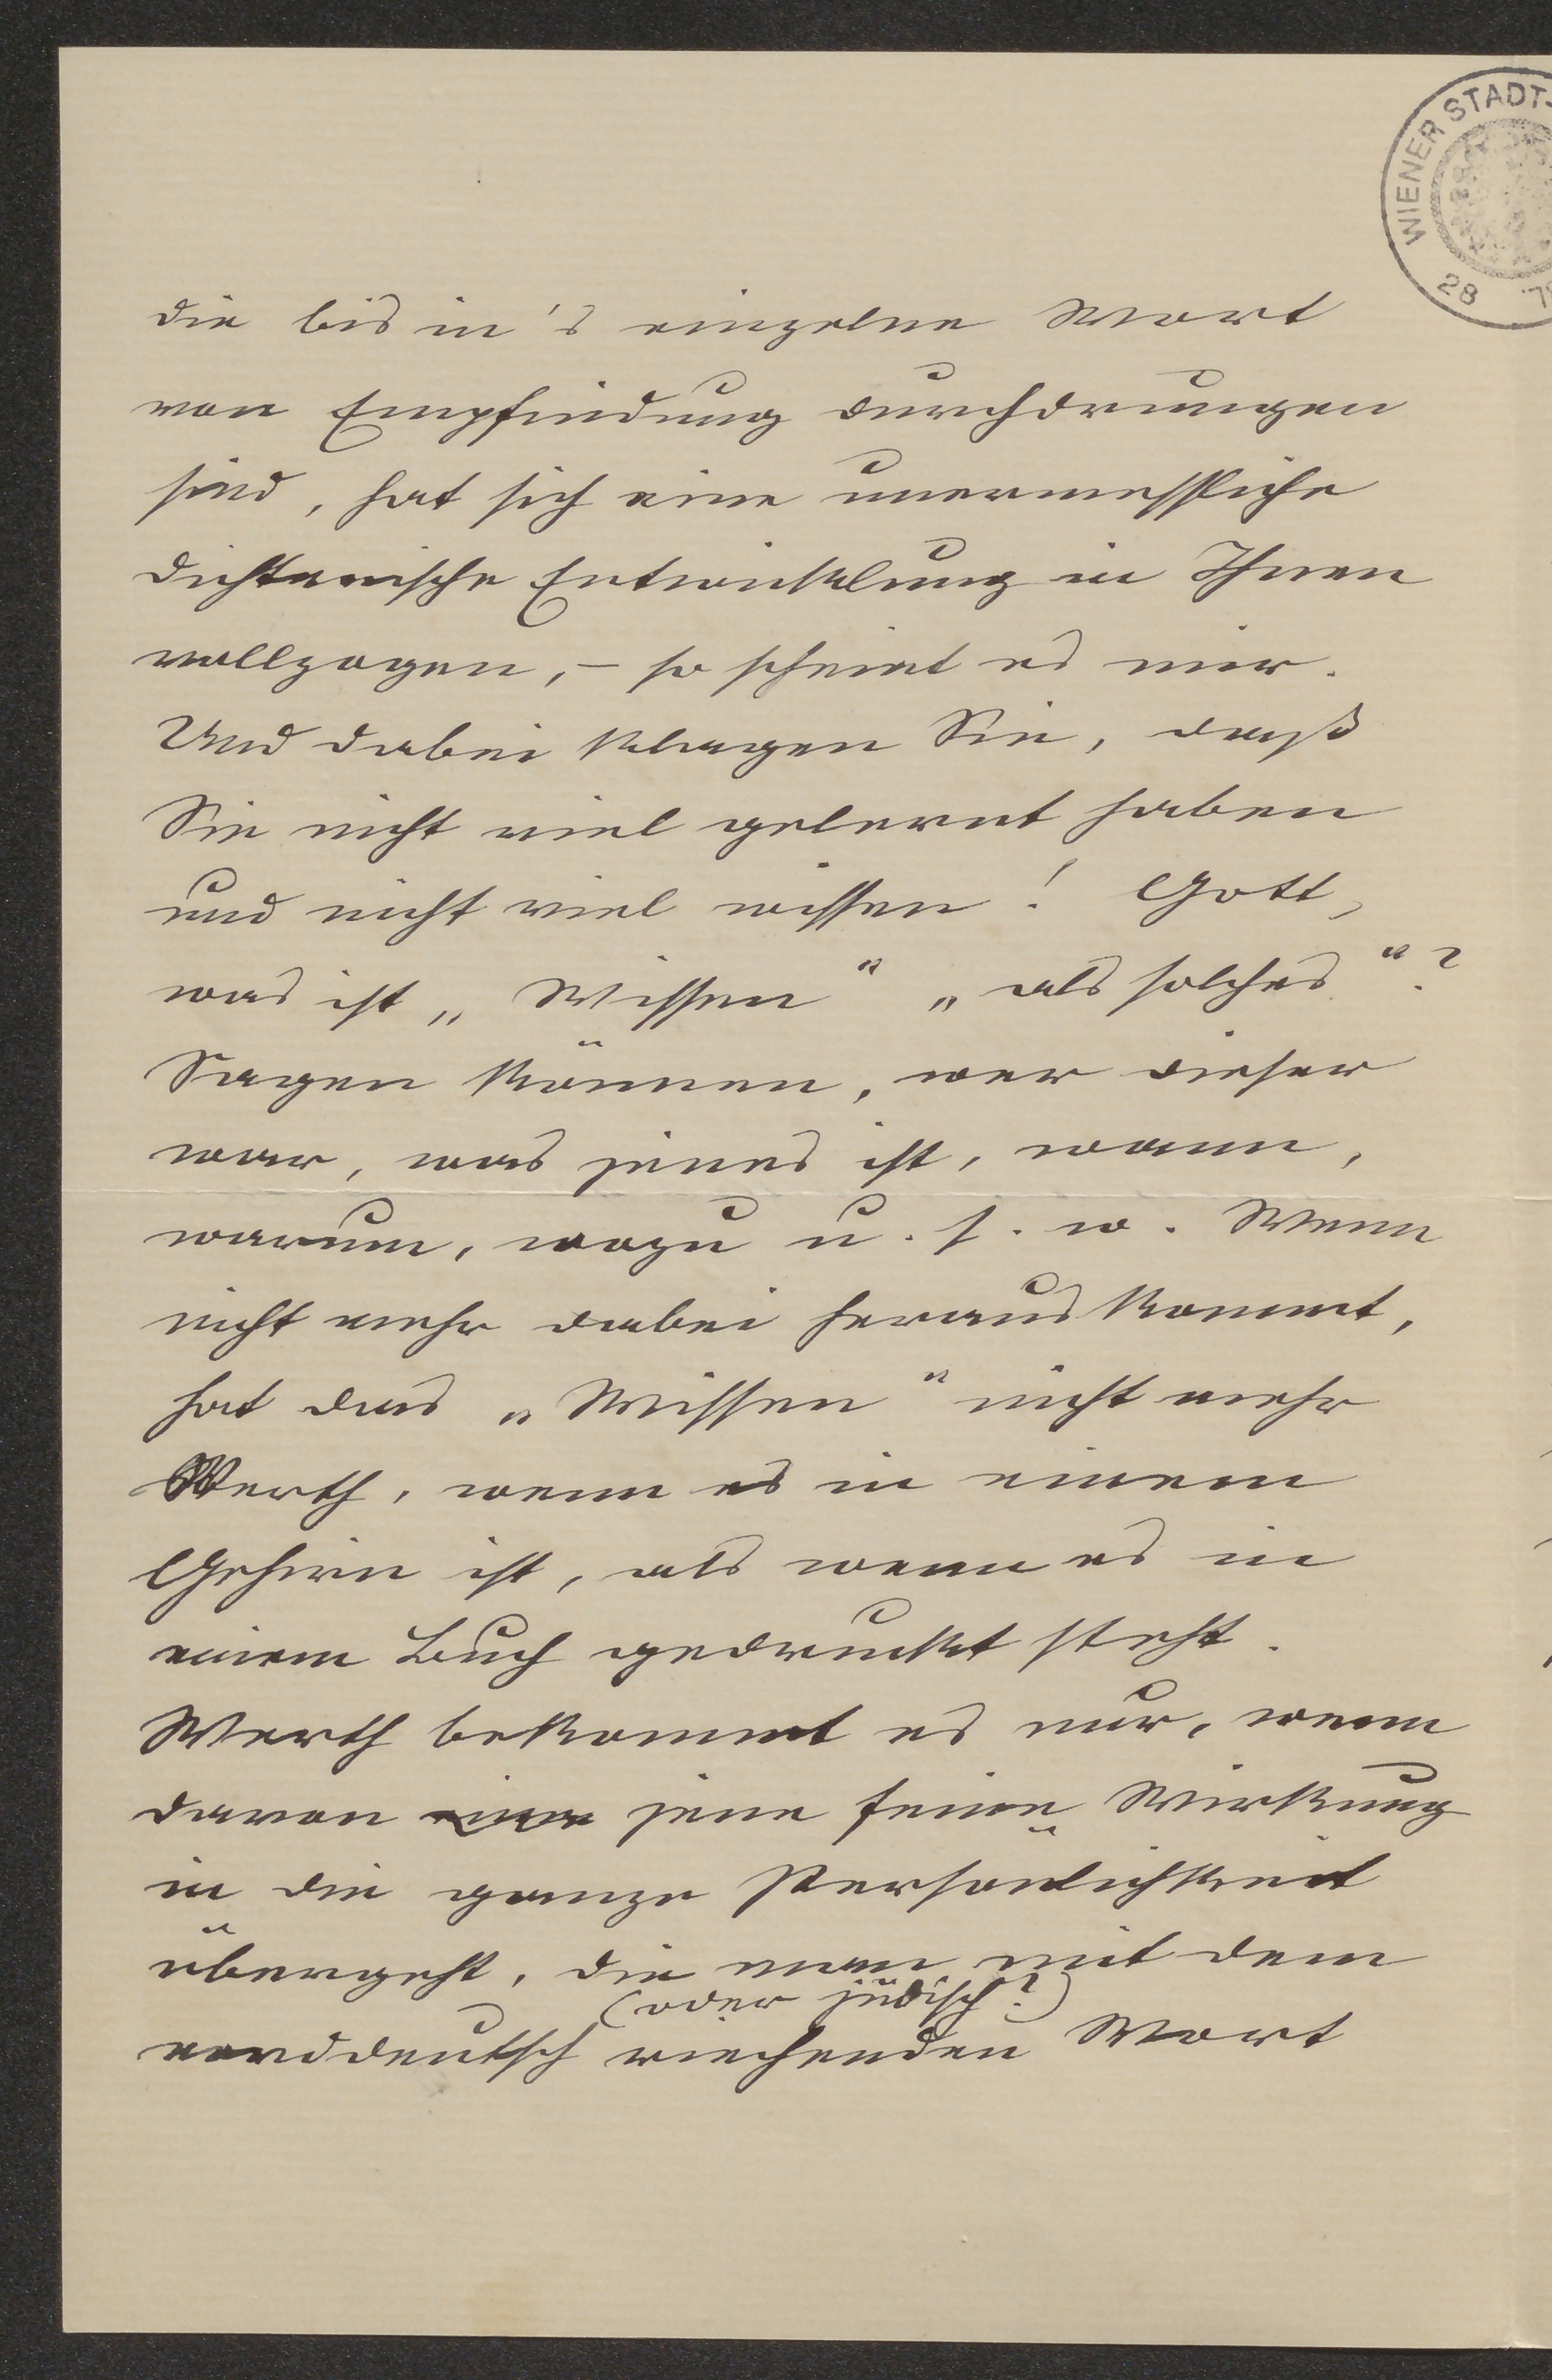 WIENER STADT-
28
die bis in's einzelne Wort
von Empfindung durchdrungen
sind, hat sich eine unermessliche
dichterische Entwicklung in Ihnen
vollzogen, – so scheint es mir.
Und dabei klagen Sie, daß
Sie nicht viel gelernt haben
und nicht viel wissen! Gott,
was ist „Wissen“ „als solches“?
Sagen können, wer dieser
war, was jenes ist, wann,
warum, wozu u. s. w. Wenn
nicht mehr dabei herauskommt,
hat das „Wissen“ nicht mehr
Werth, wenn es in einem
Gehirn ist, als wenn es in
einem Buch gedruckt steht.
Werth bekommt es nur, wenn
davon eine jene feine Wirkung
in die ganze Persönlichkeit
übergeht, die man mit dem
(oder jüdisch?)
norddeutsch riechenden Wort